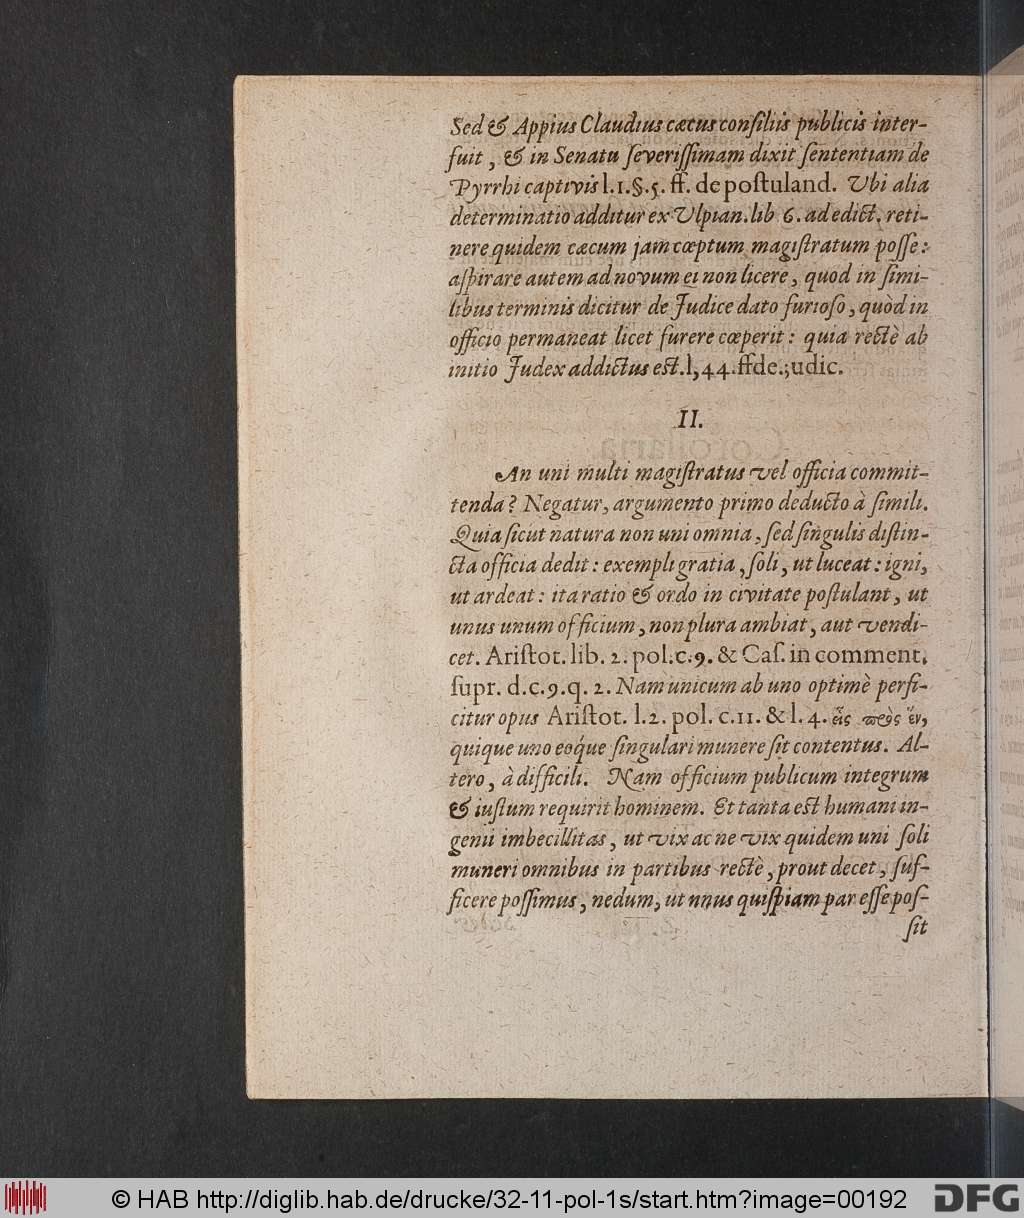 Sed & Appius Claudius cætus consiliis publicis inter-
fuit, & in Senatu ſeveriſſimam dixit ſententiam de
Pyrrhi captivis l.1.§.5. ff. de poſtuland. Ubi alia
determinatio additur ex Ulpian. lib 6. ad edict. reti-
nere quidem cæcum jam cœptum magiſtratum poſſe:
aſpirare autem ad novum ei non licere, quod in ſimi-
libus terminis dicitur de Judice dato furioſo, quòd in
officio permaneat licet furere cœperit: quia rectè ab
initio Judex addictus est. l, 44. ffde.;udic.
II.
An uni multi magiſtratus vel officia commit-
tenda? Negatur, argumento primo deducto à ſimili.
Quia ſicut natura non uni omnia, ſed ſingulis diſtin-
cta officia dedit: exempli gratia, ſoli, ut luceat: igni,
ut ardeat: ita ratio & ordo in civitate poſtulant, ut
unus unum officium, non plura ambiat, aut vendi-
cet. Ariſtot. lib. 2. pol.c.9. & Caſ. in comment.
ſupr. d.c.9.q. 2. Nam unicum ab uno optimè perfi-
citur opus Ariſtot. l.2. pol. c.11. & l. 4. εἷς πρὸς ἕν,
quique uno eoq́ue ſingulari munere ſit contentus. Al-
tero, à difficili. Nam officium publicum integrum
& iuſtum requirit hominem. Et tanta est humani in-
genii imbecillitas, ut vix ac ne vix quidem uni ſoli
muneri omnibus in partibus rectè, prout decet, ſuf-
ficere poſſimus, nedum, ut nnus quiſpiam par eſſe poſ-
ſit
© HAB http://diglib.hab.de/drucke/32-11-pol-1s/start.htm?image=00192
DFG